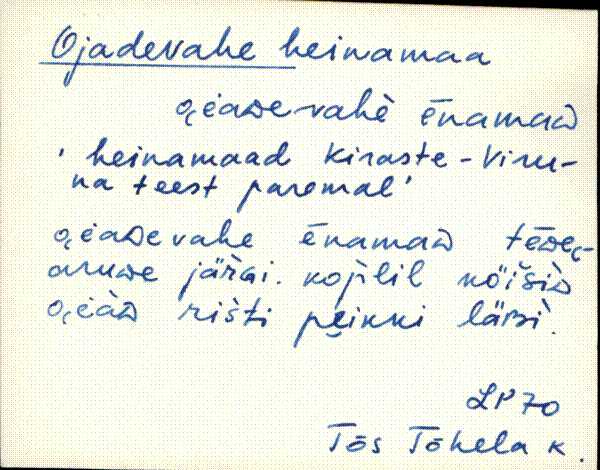 Ojadevahe heinamaa
o̭i̭aᴅevahè ēnamaᴅ
' heinamaad Kiraste - Viru-
na teest paremal'
o̭i̭aᴅevahe ēnamaᴅ tēᴅe̬-
aruᴅe järäi. kojilil nöišiᴅ
o̭i̭àᴅ rišti pe̬ikki läBi.
LP 70
Tõs Tõhela K.